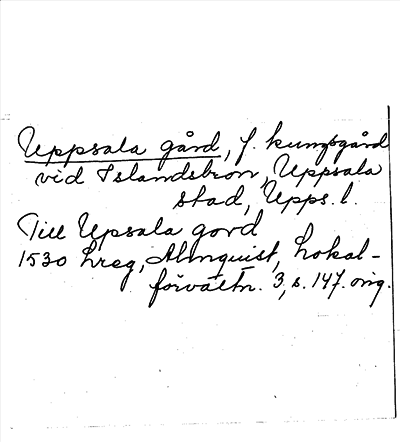 Uppsala gård, f. kungsgård
vid Islandsbron, Uppsala
stad, Upps. l.
Till Upsala gord
1530 Lreg, Almquist, Lokal-
förvaltn. 3, s. 147. orig.